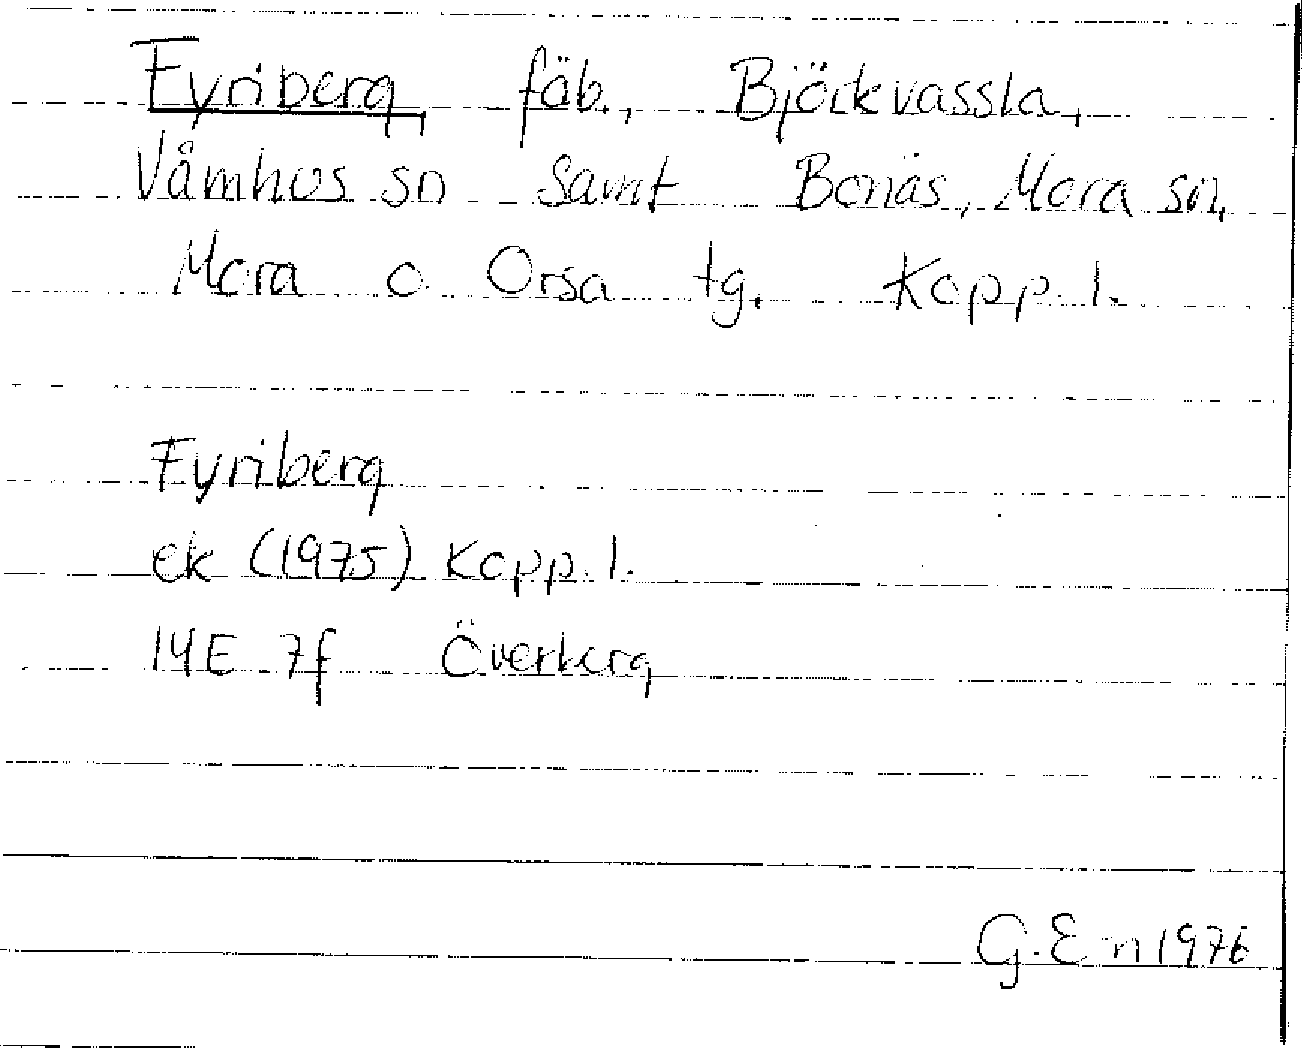 Fyriberg, fäb., Björkvassla,
Våmhus sn samt Bonäs, Mora sn,
Mora o Orsa tg. Kopp. l.
Fyriberg
ek (1975) Kopp. l.
14E 7f Överberg
G. E-n 1976